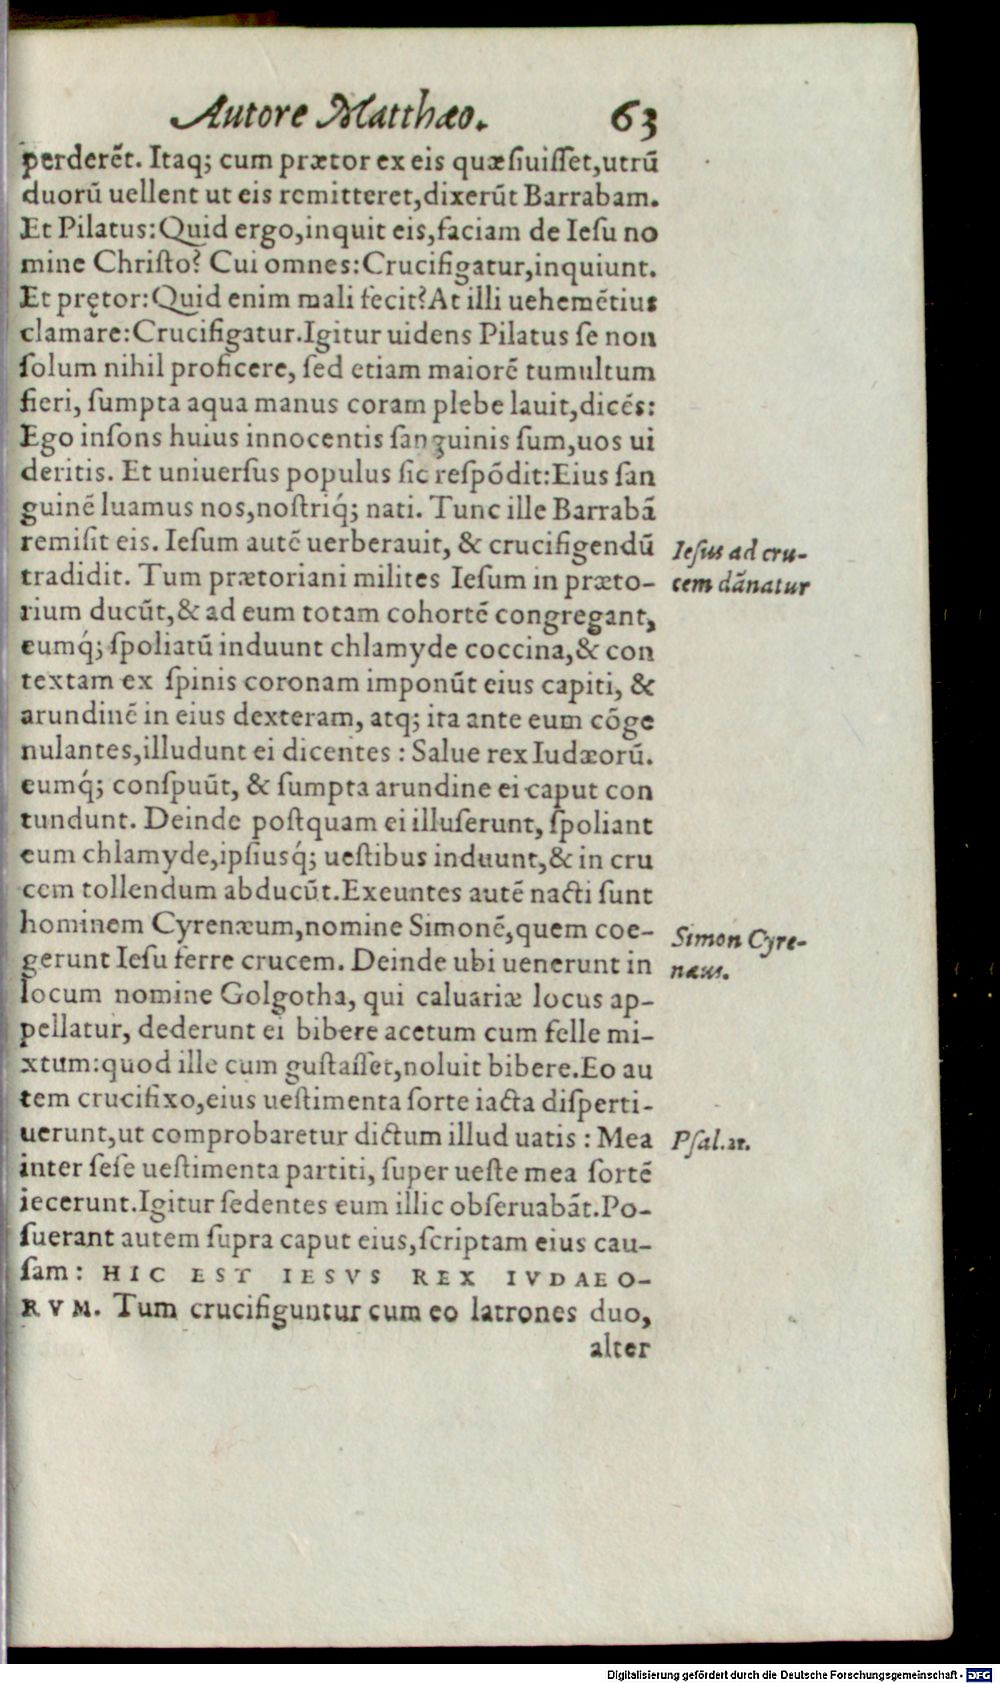 Autore Matthæo. 63
perderẽt. Itaq; cum prætor ex eis quæsiuisset,utrũ
duorũ uellent ut eis remitteret,dixerũt Barrabam.
Et Pilatus:Quid ergo,inquit eis,faciam de Iesu no
mine Christo? Cui omnes:Crucifigatur,inquiunt.
Et prętor:Quid enim mali fecit?At illi uehemẽtius
clamare:Crucifigatur.Igitur uidens Pilatus se non
solum nihil proficere, sed etiam maiorẽ tumultum
fieri, sumpta aqua manus coram plebe lauit,dicẽs:
Ego insons huius innocentis sanguinis sum,uos ui
deritis. Et uniuersus populus sic respõdit:Eius san
guinẽ luamus nos,nostriq́; nati. Tunc ille Barrabã
remisit eis. Iesum autẽ uerberauit, & crucifigendũ
tradidit. Tum prætoriani milites Iesum in præto-
rium ducũt,& ad eum totam cohortẽ congregant,
eumq́; spoliatũ induunt chlamyde coccina,& con
textam ex spinis coronam imponũt eius capiti, &
arundinẽ in eius dexteram, atq; ita ante eum cõge
nulantes,illudunt ei dicentes : Salue rex Iudæorũ.
eumq́; conspuũt, & sumpta arundine ei caput con
tundunt. Deinde postquam ei illuserunt, spoliant
eum chlamyde,ipsiusq́; uestibus induunt,& in cru
cem tollendum abducũt.Exeuntes autẽ nacti sunt
hominem Cyrenæum,nomine Simonẽ,quem coe-
gerunt Iesu ferre crucem. Deinde ubi uenerunt in
locum nomine Golgotha, qui caluariæ locus ap-
pellatur, dederunt ei bibere acetum cum felle mi-
xtum:quod ille cum gustasset,noluit bibere.Eo au
tem crucifixo,eius uestimenta sorte iacta disperti-
uerunt,ut comprobaretur dictum illud uatis : Mea
inter sese uestimenta partiti, super ueste mea sortẽ
iecerunt.Igitur sedentes eum illic obseruabãt.Po-
suerant autem supra caput eius,scriptam eius cau-
sam: HIC EST IESVS REX IVDAEO-
RVM. Tum crucifiguntur cum eo latrones duo,
alter
Iesus ad cru-
cem dãnatur
Simon Cyre-
næus.
Psal.21.
Digitalisierung gefördert durch die Deutsche Forschungsgemeinschaft - DFG